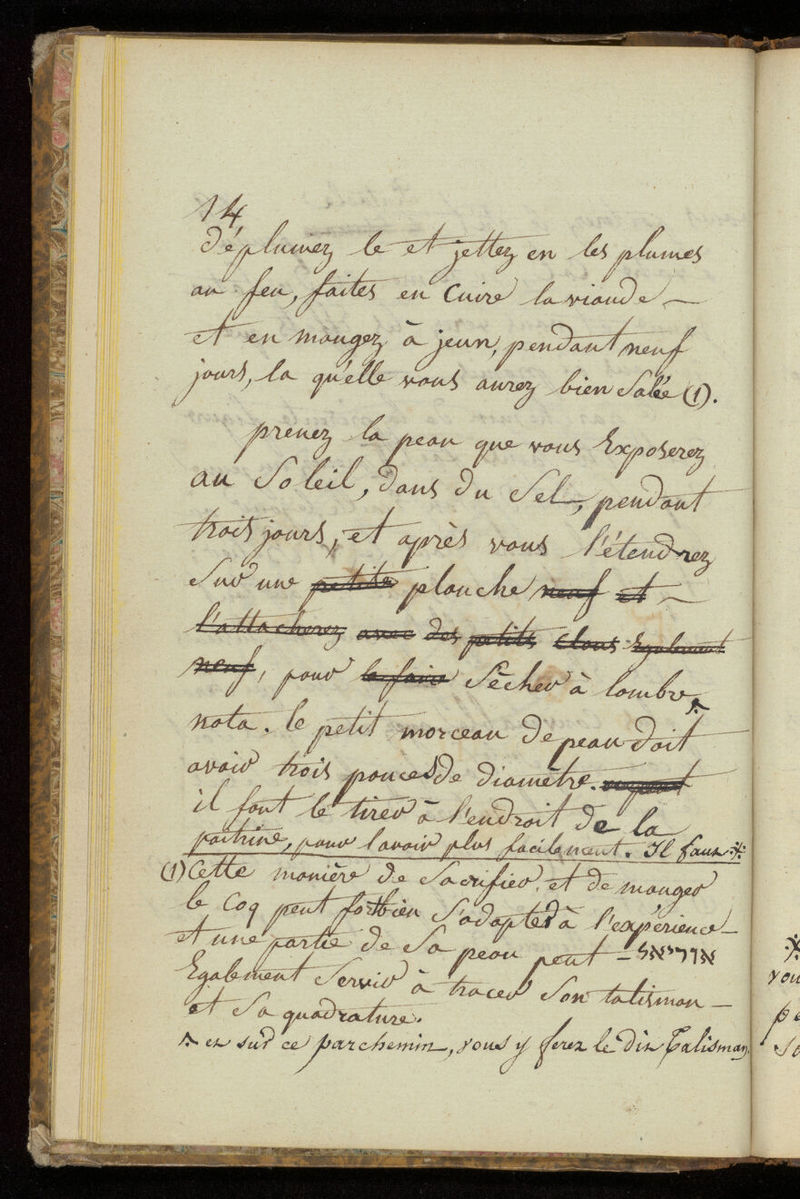 14
Déplumez le et jettez en les plumes
au feu, faites en Cuire la viande –
et en mangez à jeun, pendant neuf
jours, la qu'elle vous aurez bien Salée (1).
prenez la peau que vous Exposerez
au Soleil, dans du Sel, pendant
trois jours, et après vous l'étendrez
Sur une petite planche neuf et –
l'attacherez avec des petits Clous Egalement
neuf, pour la faire Sêcher à lombre
nota. le petit morceau de peau doit
avoir trois pouces de diamètre.
il faut le tirer à l'endroit de la
poitrine, pour lavoir plus facilement. Il faux ※
(1) Cette manière de Sacrifier, et de manger
le Coq peut fortbien S'adapter à l'expérience –
et une partie de Sa peau peut – אוריאל
Egalement Servir à tracer Son talisman –
et Sa quadrature.
et sur ce parchemin, vous y ferez le dit Talisman.
※
vou
pe
So